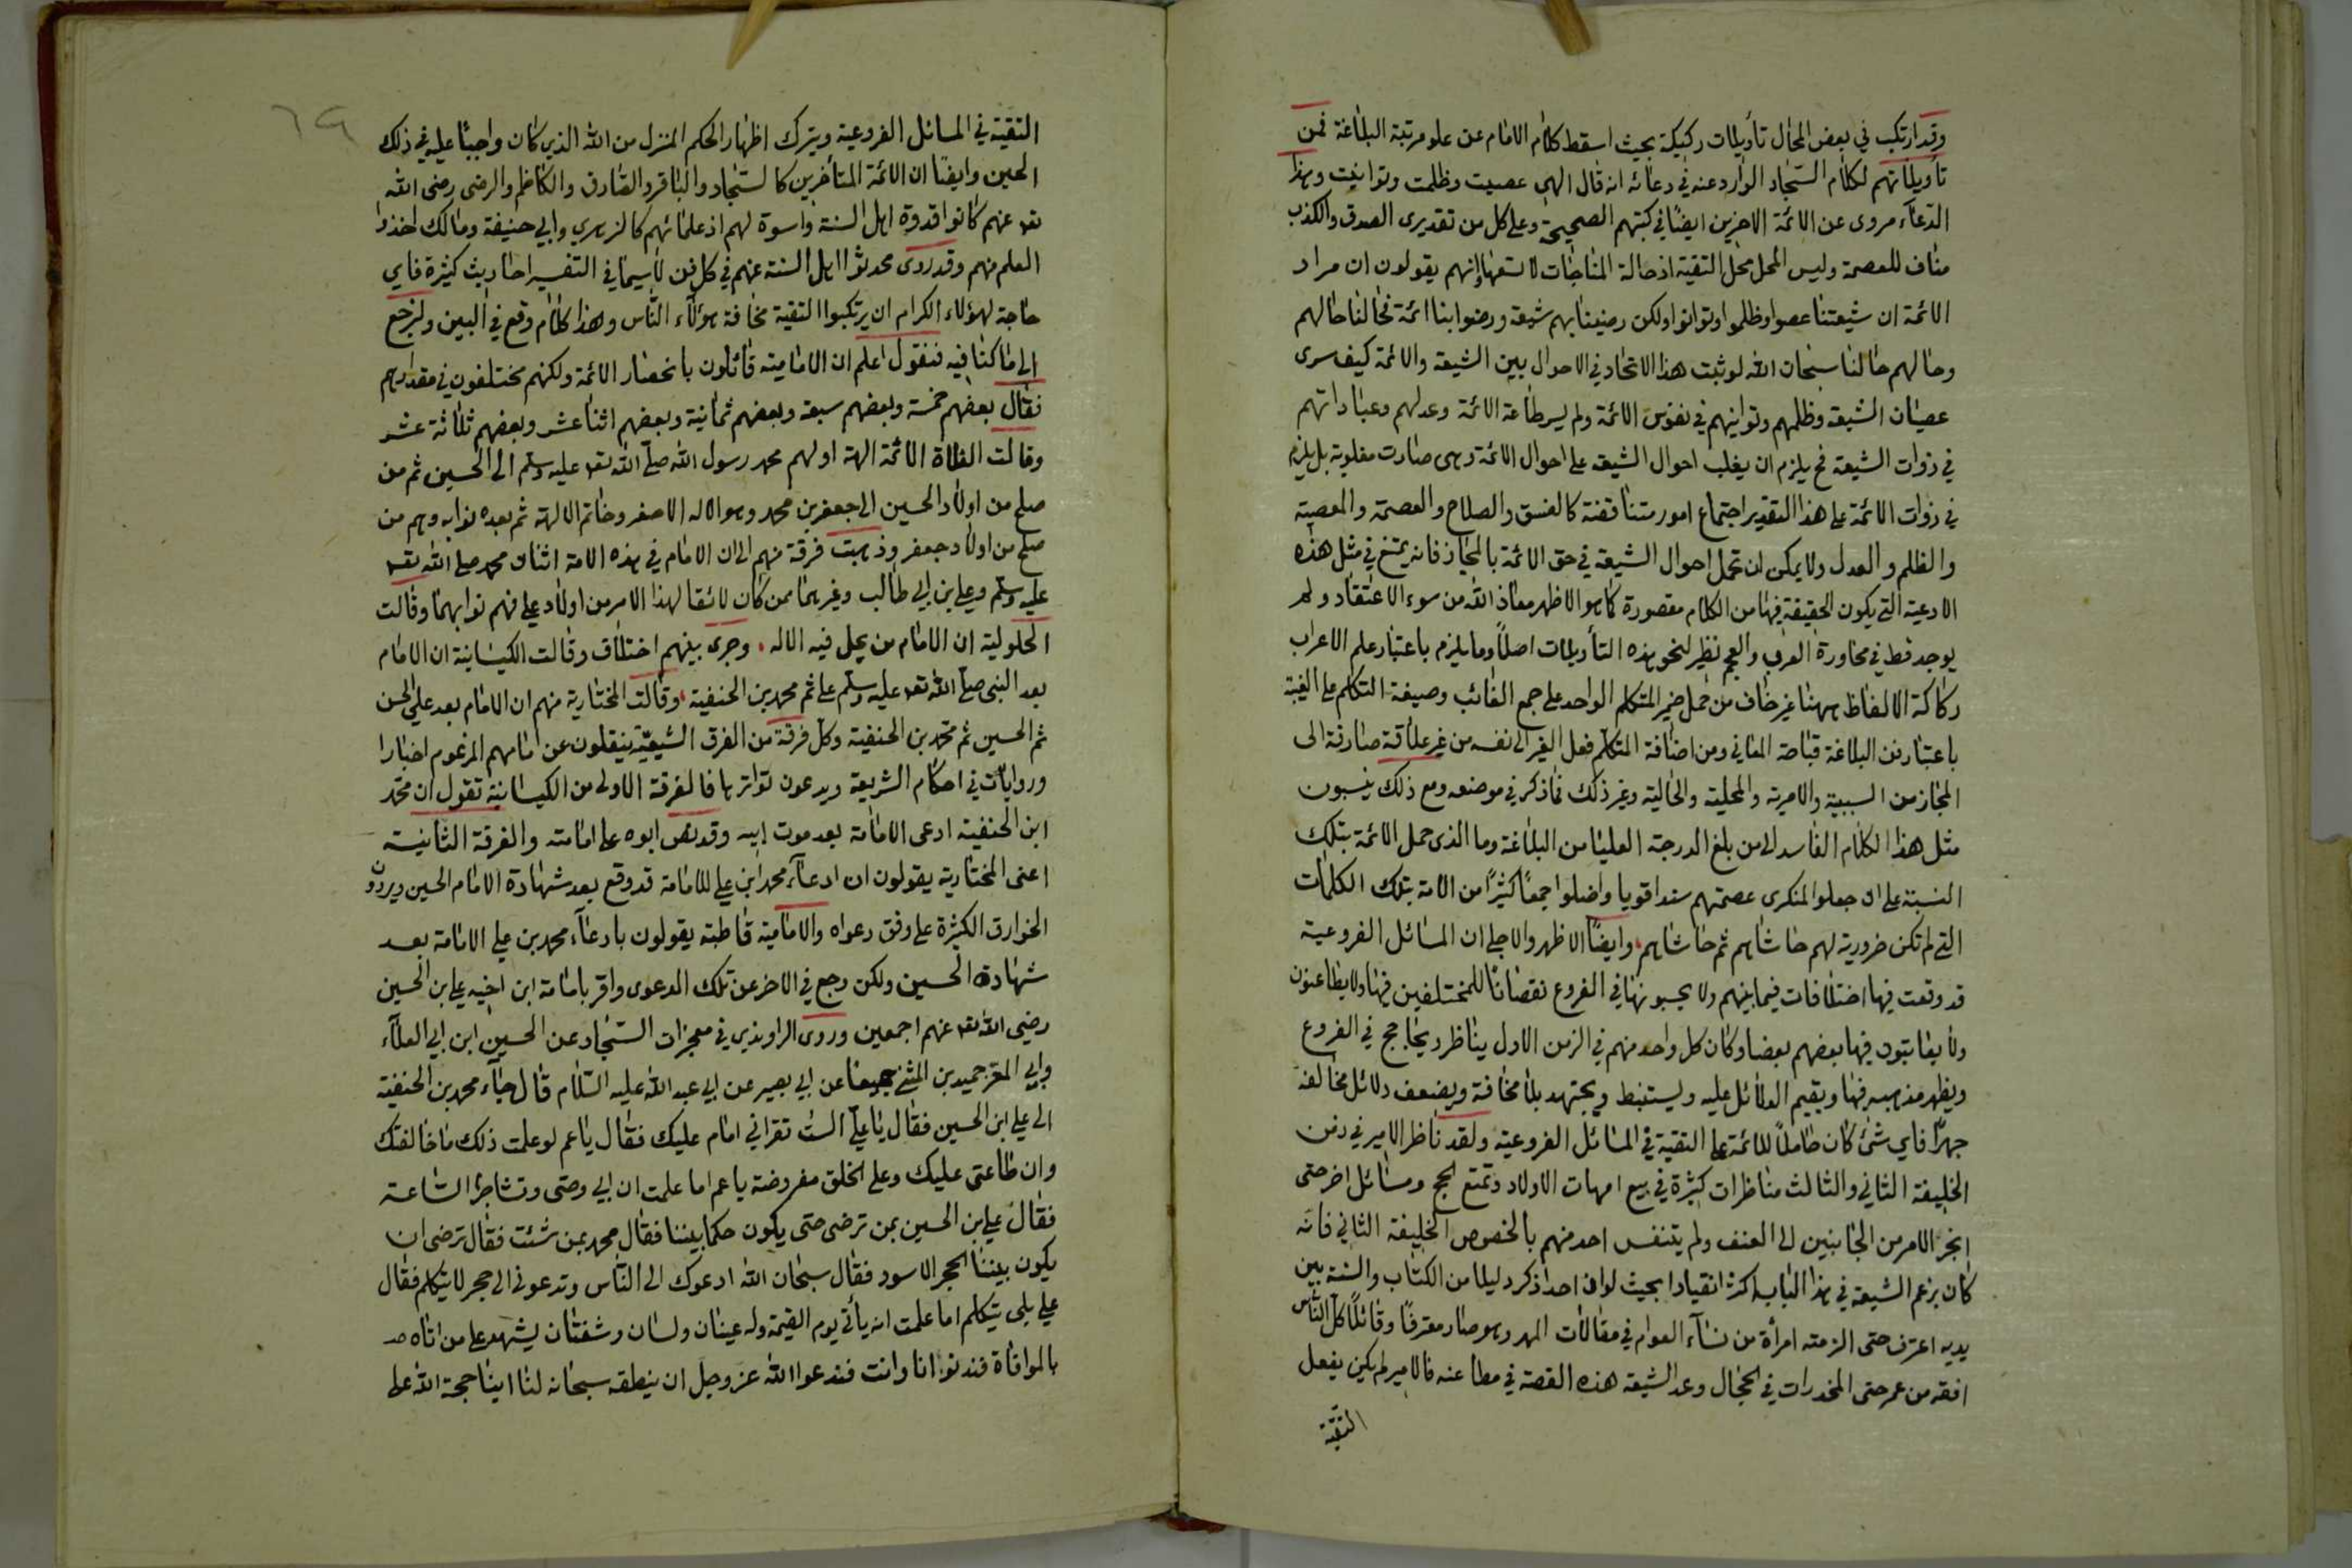 وقد ارتكب في بعض المحال تأويلات ركيكة بحيث اسقط كلام الامام عن علو مرتبة البلاغة فمن
تأويلاتهم لكلام السجاد الوارد عنه في دعائه انه قال الهي عصيت وظلمت وتوانيت وهذا
الدعاء مروى عن الائمة الاخرين ايضا في كتبهم الصحيحة وعلى كل من تقديرى الصدق والكذب
مناف للعصمة وليس المحل محل التقية اذ حالة المناجات لا تسعها انهم يقولون ان مراد
الائمة ان شيعتنا عصوا وظلموا وتوانوا ولكن رضينا بهم شيعة ورضوا بنا ائمة فحالنا حالهم
وحالهم حالنا سبحان الله لو ثبت هذا الاتحاد في الاحوال بين الشيعة والائمة كيف سرى
عصيان الشيعة وظلمهم وتوانيهم في نفوس الائمة ولم يسر طاعة الائمة وعدلهم وعباداتهم
في ذوات الشيعة فح يلزم ان يغلب احوال الشيعة على احوال الائمة وهى صارت مغلوبة بل يلزم
في ذوات الائمة على هذا التقدير اجتماع امور متناقضة كالفسق والصلاح والعصمة والمعصية
والظلم والعدل ولا يمكن ان تحمل احوال الشيعة في حق الائمة بالمجاز فانه يمتنع في مثل هذه
الادعية التي يكون الحقيقة فيها من الكلام مقصورة كما هو الاظهر معاذ الله من سوء الاعتقاد ولم
يوجد قط في محاورة العرب والعجم نظير لنحو هذه التأويلات اصلا وما يلزم باعتبار علم الاعراب
ركاكة الالفاظ ههنا غير خاف من حمل ضمير المتكلم الواحد على جمع الغائب وصيغة التكلم على الغيبة
باعتبار فن البلاغة قباحة المعاني ومن اضافة المتكلم فعل الغير الى نفسه من غير علاقة صارفة الى
المجاز من السببية والامرية والمحلية والحالية وغير ذلك مما ذكر في موضعه ومع ذلك ينسبون
مثل هذا الكلام الفاسد الى من بلغ الدرجة العليا من البلاغة وما الذى حمل الائمة بتلك
النسبة على ان جعلوا المنكرى عصمتهم سندا قويا واضلوا جمعا كثيرا من الامة بتلك الكلمات
التي لم تكن ضرورية لهم حاشاهم ثم حاشاهم وايضا الاظهر والاجلى ان المسائل الفروعية
قد وقعت فيها اختلافات فيما بينهم ولا يحسبونها في الفروع نقصانا للمختلفين فيها ولا يطاعنون
ولا يعاتبون فيها بعضهم بعضا وكان كل واحد منهم في الزمن الاول يناظر ويحاجج في الفروع
ويظهر مذهبه فيها ويقيم الدلائل عليه ويستنبط ويجتهد بلا مخافة ويضعف دلائل مخالفه
جهرا فاي شئ كان حاملا للائمة على التقية في المسائل الفروعية ولقد ناظر الامير في زمن
الخليفة الثاني والثالث مناظرات كثيرة في بيع امهات الاولاد وتمتع الحج ومسائل اخر حتى
انجر الامر من الجانبين الى العنف ولم يتنفس احد منهم بالخصوص الخليفة الثاني فانه
كان بزعم الشيعة في هذا الباب اكثر انقيادا بحيث لو ان احدا ذكر دليلا من الكتاب والسنة بين
يديه اعترف حتى الزمته امرأة من نساء العوام في مقالات المهر وهو صار معترفا وقائلا كل الناس
افقه من عمر حتى المخدرات في الحجال وعد الشيعة هذه القصة في مطاعنه فالامير لم يكن يفعل
التقية
٦٩
التقية في المسائل الفروعية ويترك اظهار الحكم المنزل من الله الذي كان واجبا عليه في ذلك
الحين وايضا ان الائمة المتأخرين كالسجاد والباقر والصادق والكاظم والرضى رضى الله
تعه عنهم كانوا قدوة اهل السنة واسوة لهم اذ علمائهم كالزهري وابي حنيفة ومالك اخذوا
العلم منهم وقد روى محدثوا اهل السنة عنهم في كل فن لاسيما في التفسير احاديث كثيرة فاي
حاجة لهؤلاء الكرام ان يرتكبوا التقية مخافة هؤلاء الناس وهذا كلام وقع في البين ولنرجع
الى ما كنا فيه فنقول اعلم ان الامامية قائلون بانحصار الائمة ولكنهم مختلفون في مقدارهم
فقال بعضهم خمسة وبعضهم سبعة وبعضهم ثمانية وبعضهم اثنا عشر وبعضهم ثلاثة عشر
وقالت الغلاة الائمة الهة اولهم محمد رسول الله صلى الله تعه عليه وسلم الى الحسين ثم من
صلح من اولاد الحسين الى جعفر بن محمد وهو الاله الاصغر وخاتم الالهة ثم بعده نوابه وهم من
صلح من اولاد جعفر وذهبت فرقة منهم الى ان الامام في هذه الامة اثنان محمد صلى الله تعه
عليه وسلم وعلي بن ابي طالب وغيرهما ممن كان لائقا لهذا الامر من اولاد علي فهم نوابهما وقالت
الحلولية ان الامام من يحل فيه الاله وجرى بينهم اختلاف وقالت الكيسانية ان الامام
بعد النبى صلى الله تعه عليه وسلم علي ثم محمد بن الحنفية وقالت المختارية منهم ان الامام بعد علي الحسن
ثم الحسين ثم محمد بن الحنفية وكل فرقة من الفرق الشيعية ينقلون عن امامهم المزعوم اخبارا
وروايات في احكام الشريعة ويدعون تواترها فالفرقة الاولى من الكيسانية تقول ان محمد
ابن الحنفية ادعى الامامة بعد موت ابيه وقد نص ابوه على امامته والفرقة الثانية
اعنى المختارية يقولون ان ادعاء محمد ابن علي للامامة قد وقع بعد شهادة الامام الحسين ويروون
الخوارق الكثيرة على وفق دعواه والامامية قاطبة يقولون بادعاء محمد بن علي الامامة بعد
شهادة الحسين ولكن رجع في الاخر عن تلك الدعوى واقر بامامة ابن اخيه علي بن الحسين
رضي الله تعه عنهم اجمعين وروى الراوندي في معجزات السجاد عن الحسين ابن ابي العلاء
وابي المعز حميد بن المثنى جميعا عن ابي بصير عن ابي عبد الله عليه السلام قال جاء محمد بن الحنفية
الى علي ابن الحسين فقال يا علي الست تقر اني امام عليك فقال يا عم لو علمت ذلك ما خالفتك
وان طاعتى عليك وعلى الخلق مفروضة يا عم اما علمت ان ابي وصى وتشاجرا الساعة
فقال علي بن الحسين بمن ترضى حتى يكون حكما بيننا فقال محمد بمن شئت فقال ترضى ان
يكون بيننا الحجر الاسود فقال سبحان الله ادعوك الى الناس وتدعوني الى حجر لا يتكلم فقال
علي بلى يتكلم اما علمت انه يأتي يوم القيمة وله عينان ولسان وشفتان يشهد على من اتاه
بالموافاة فندنو انا وانت فندعوا الله عز وجل ان ينطقه سبحانه لنا اينا حجة الله على